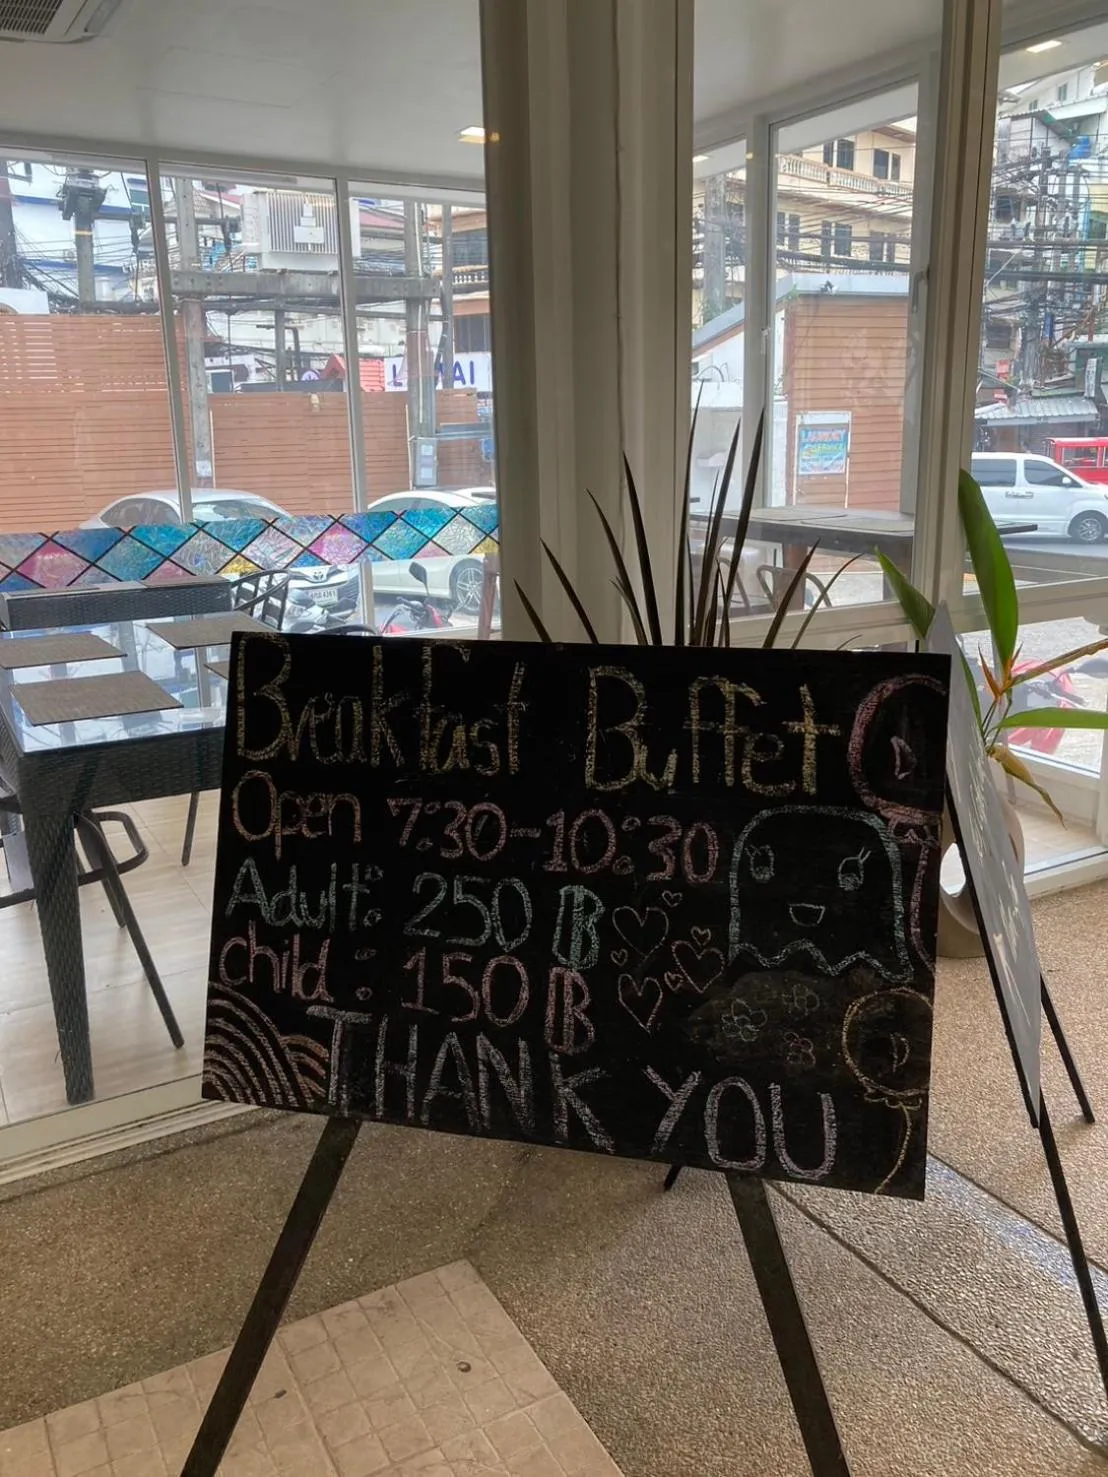 LAUNDRY
SERVICE
Breakfast Buffet
Open 7:30-10:30
Adult: 250 ฿
child: 150 ฿
THANK YOU